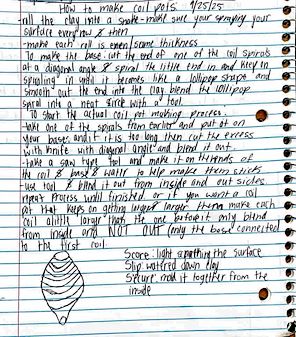 How to make coil pots. 9/25/25
roll the clay into a snake - make sure your spraying your
surface every now & then
-make each roll is even/same thickness
To make the base: cut the end of one of the coil spirals
at a diagonal angle & spiral the little end in and keep in
spiraling in until it becomes like a lollipop shape and
smooth out the end into the clay. blend the lollipop
spiral into a neat circle with a tool
To start the actual coil pot making process:
-take one of the spirals from earlier and put it on
your base and if it is too long then cut the excess
with knife with diagonal angle and blend it out.
-take a saw type tool and make it on the ends of
the coil & base & water to help make them stick
-use tool & blend it out from inside and out sides
repeat process until finished or if you want a coil
pot that keeps on getting larger & larger then make each
coil a little larger than the one before it only blend
from inside and NOT OUT (only the base connected
to the first coil.
Score: light scratching the surface
Slip: watered down clay
Secure: mold it together from the
inside